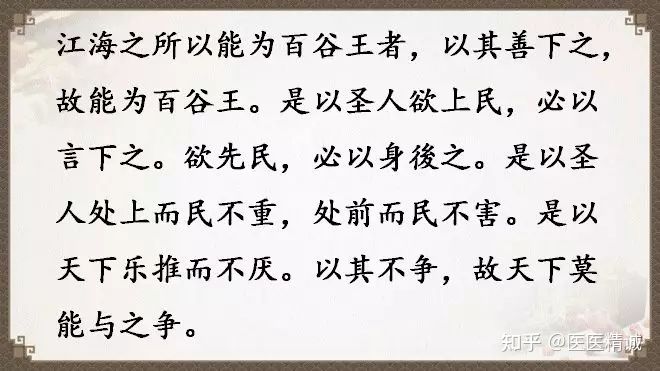 江海之所以能为百谷王者，以其善下之，
故能为百谷王。是以圣人欲上民，必以
言下之。欲先民，必以身後之。是以圣
人处上而民不重，处前而民不害。是以
天下乐推而不厌。以其不争，故天下莫
能与之争。
知乎 @医医精诚